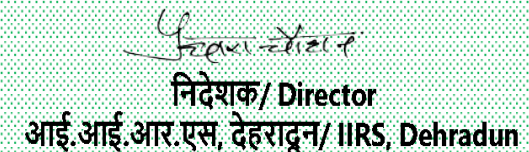 निदेशक/ Director
आई.आई.आर.एस, देहरादून/ IIRS, Dehradun